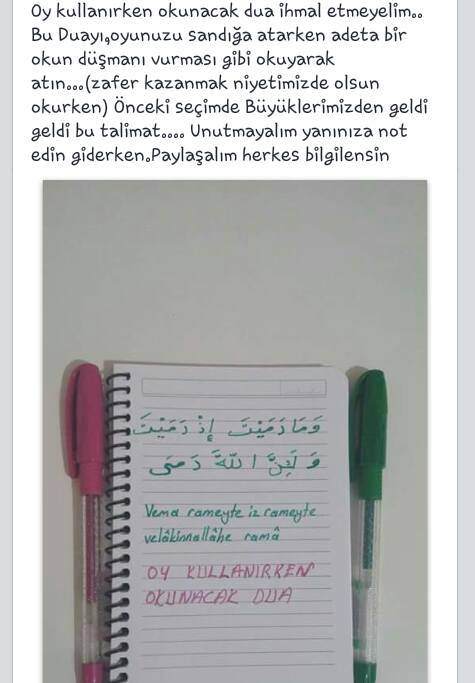 Oy kullanırken okunacak dua ihmal etmeyelim..
Bu Duayı,oyunuzu sandığa atarken adeta bir
okun düşmanı vurması gibi okuyarak
atın...(zafer kazanmak niyetimizde olsun
okurken) Önceki seçimde Büyüklerimizden geldi
geldi bu talimat.... Unutmayalım yanınıza not
edin giderken.Paylaşalım herkes bilgilensin
وَمَا رَمَيْتَ إِذْ رَمَيْتَ
وَلَكِنَّ اللّٰهَ رَمَى
Vema rameyte iz rameyte
velâkinnallâhe ramâ
OY KULLANIRKEN
OKUNACAK DUA